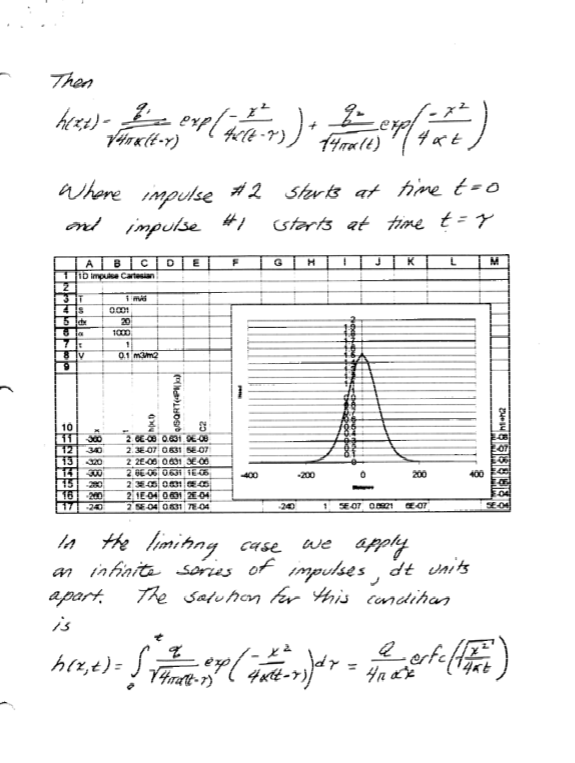 Then
h(x,t) = q₁/√(4πα(t-τ)) exp(-x²/(4α(t-τ))) + q₂/√(4πα(t)) exp(-x²/(4αt))
Where impulse #2 starts at time t=0
and impulse #1 starts at time t=τ
A B C D E F G H I J K L M
1 1D Impulse Cartesian
2
3 T 1 m/d
4 S 0.001
5 dx 20
6 α 1000
7 τ 1
8 V 0.1 m3/m2
9
10 x t h(x,t) C2 h1+h2
11 -360 2 6E-08 0.631 9E-08 E-08
12 -340 2 3E-07 0.631 5E-07 E-07
13 -320 2 2E-06 0.631 3E-06 E-06
14 -300 2 8E-06 0.631 1E-05 E-05
15 -280 2 3E-05 0.631 6E-05 E-05
16 -260 2 1E-04 0.631 2E-04 E-04
17 -240 2 5E-04 0.631 7E-04 -240 1 5E-07 0.8921 6E-07 5E-04
Head
-400 -200 0 200 400
Distance
In the limiting case we apply
an infinite series of impulses, dt units
apart. The solution for this condition
is
h(x,t) = ∫₀ᵗ q/√(4πα(t-τ)) exp(-x²/(4α(t-τ))) dτ = erfc(√(x²/4αt))